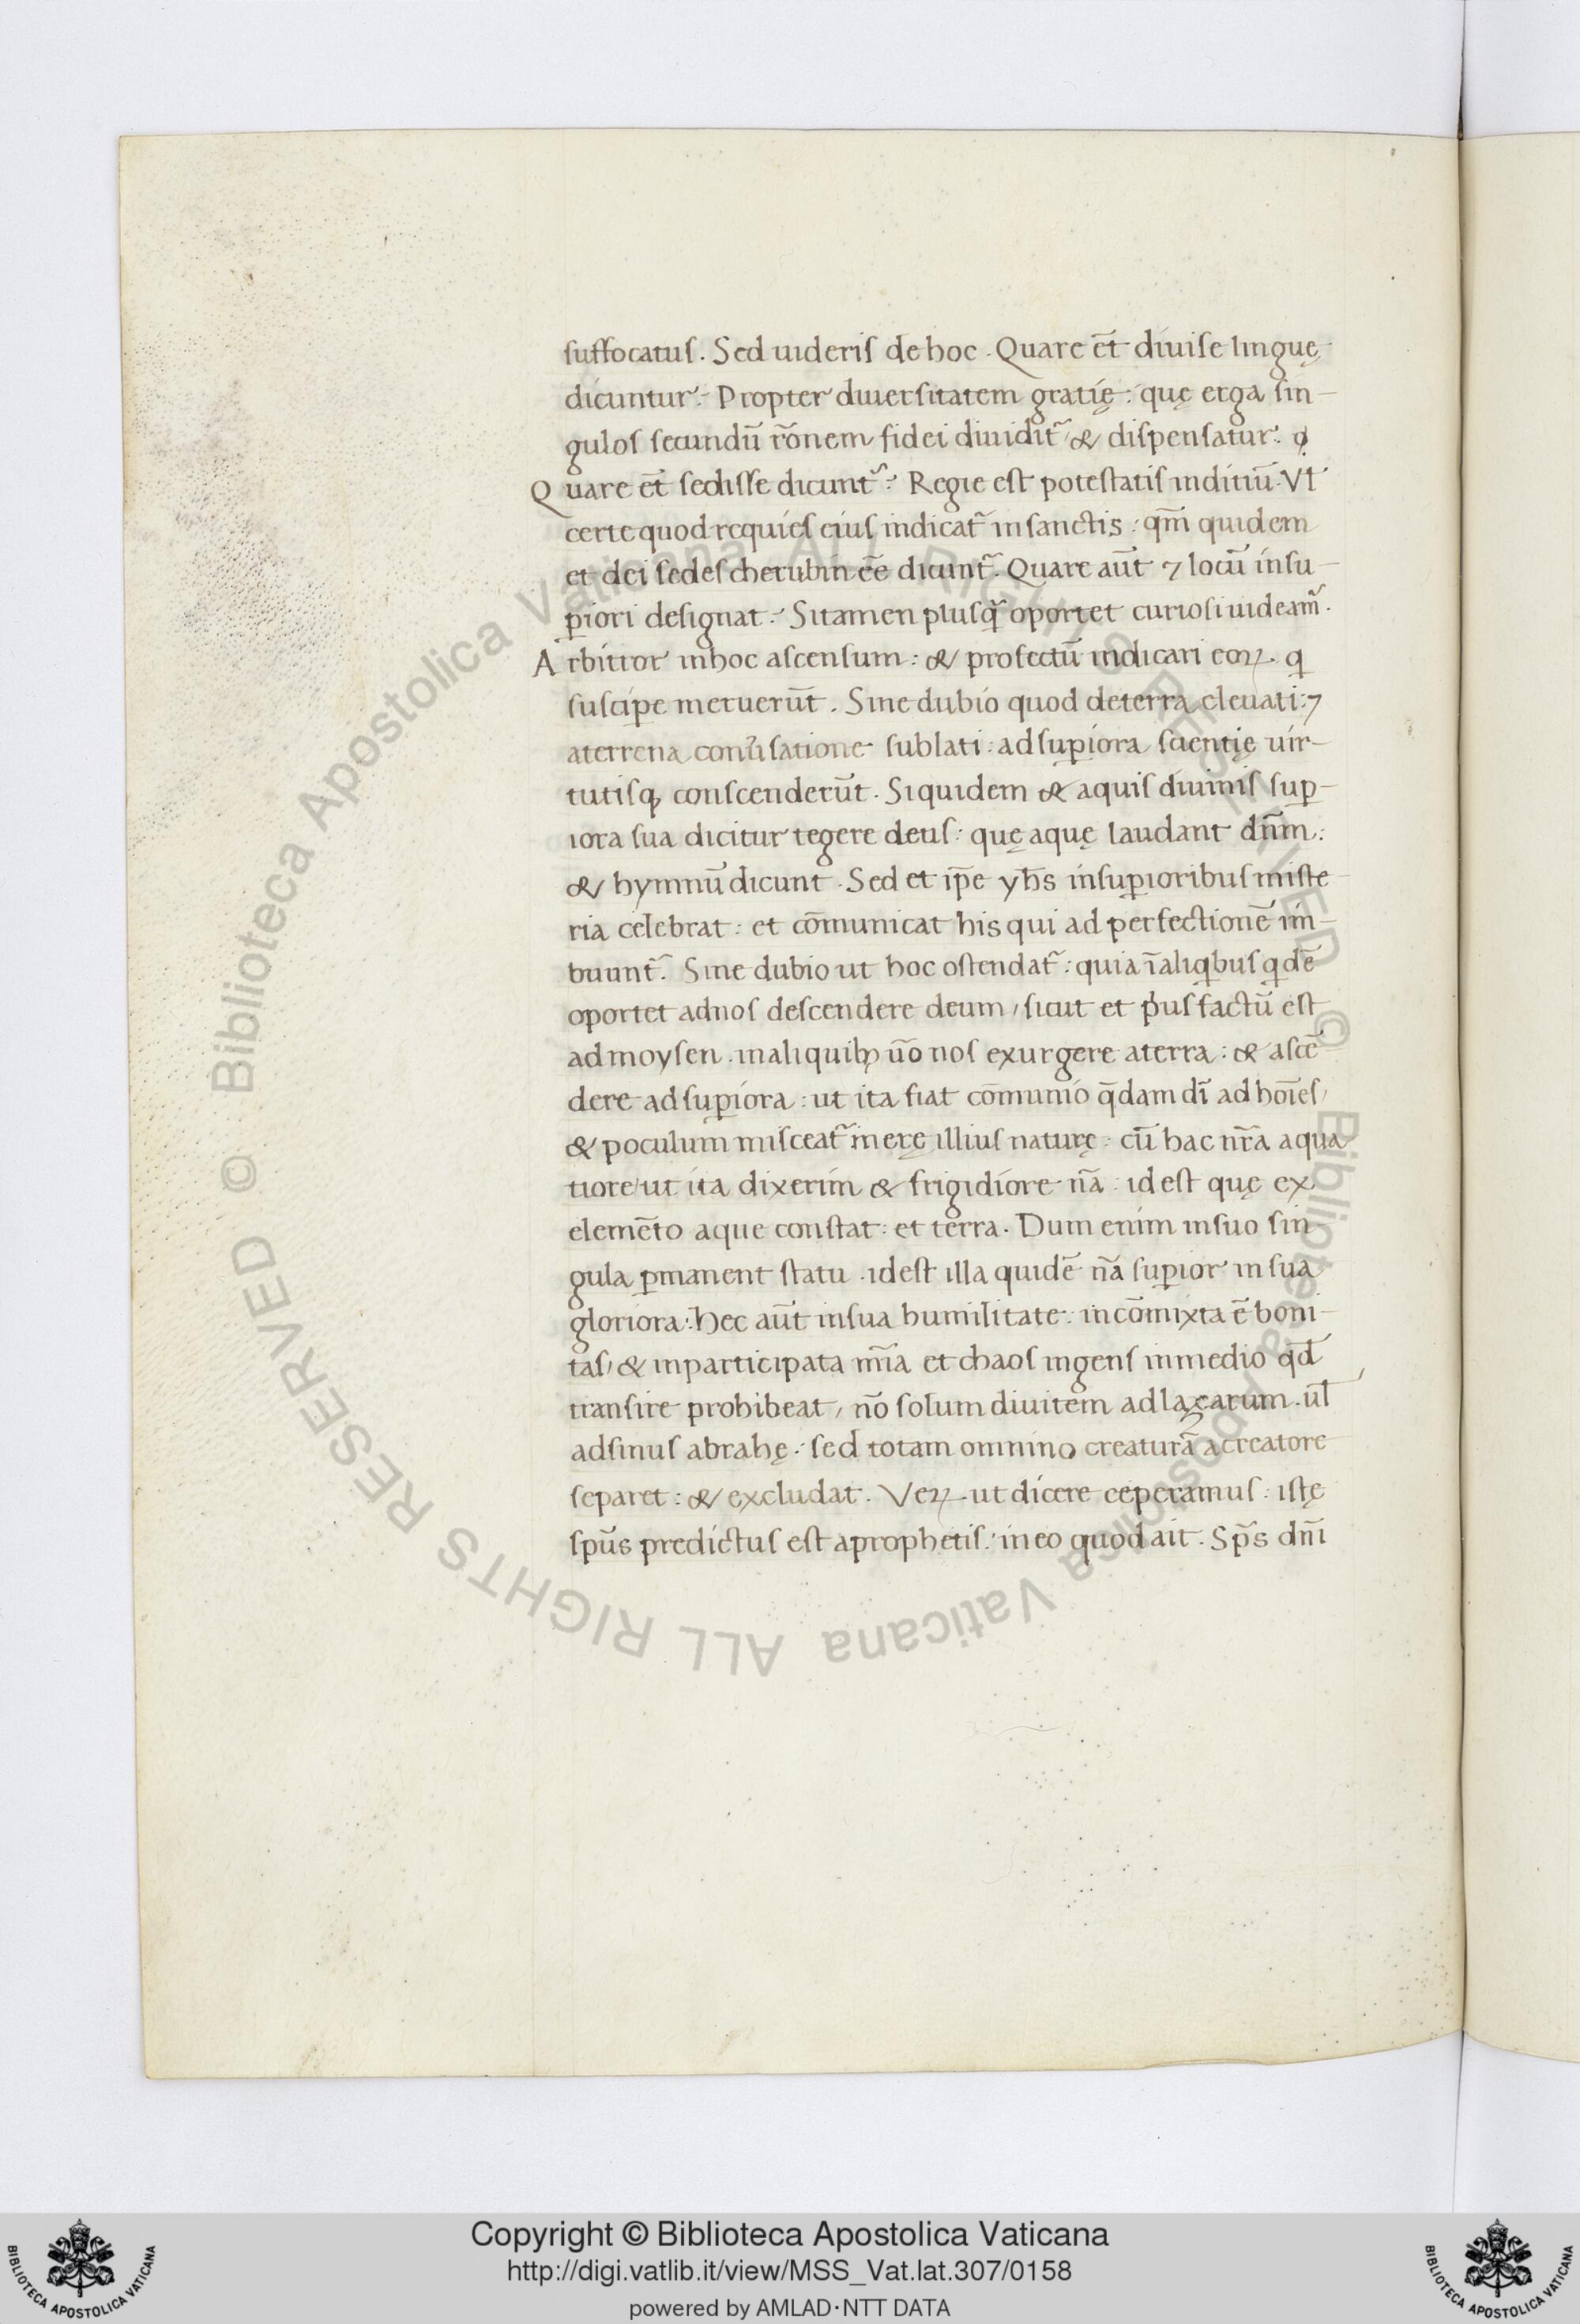 suffocatus. Sed uideris de hoc. Quare et̄ diuise linguę
dicuntur: Propter diuersitatem gratię: quę erga sin-
gulos secundū rōnem fidei diuidit᷑ & dispensatur.
Quare et̄ sedisse dicunt᷑: Regie est potestatis inditiū. Vl̄
certe quod requies eius indicat᷑ in sanctis: qm̄ quidem
et dei sedes cherubin eē dicunt᷑. Quare aūt ⁊ locū in su-
ꝑiori designat: Si tamen plusq̄ oportet curiosi uideam᷑.
Arbitror in hoc ascensum: & profectū indicari eoꝝ. q
suscipe meruerūt. Sine dubio quod de terra eleuati: ⁊
a terrena conu̾satione sublati: ad suꝑiora scientię uir-
tutisqꝫ conscenderūt. Siquidem & aquis diuinis suꝑ-
iora sua dicitur tegere deus: quę aquę laudant dn̄m:
& hymnū dicunt. Sed et ip̄e yh̄s in suꝑioribus miste
ria celebrat: et cōmunicat his qui ad perfectionē im-
buunt᷑. Sine dubio ut hoc ostendat᷑: quia ī aliqͥbus qͥdē
oportet ad nos descendere deum, sicut et pͥus factū est
ad moysen. in aliquibꝫ ūo nos exurgere a terra: & ascē
dere ad suꝑiora: ut ita fiat cōmunio q̄dam dī ad hoīes,
& poculum misceat᷑ merę illius naturę: cū hac nr̄a aqua
tiore, ut ita dixerim & frigidiore nā: id est quę ex
elemēto aque constat: et terra. Dum enim in suo sin-
gula ꝑmanent statu. id est illa quidē nā suꝑior in sua
gloriora: Hec aūt in sua humilitate: incōmixta ē boni-
tas, & inparticipata mīa et chaos ingens in medio qd̄
transire prohibeat, nō solum diuitem ad lazarum. ul̄
ad sinus abrahę. sed totam omnino creaturā a creatore
separet: & excludat. Veꝝ ut dicere ceperamus: istę
spūs predictus est a prophetis: in eo quod ait. Sp̄s dn̄i
© Biblioteca Apostolica Vaticana ALL RIGHTS RESERVED © Biblioteca Apostolica Vaticana ALL RIGHTS RESERVED
BIBLIOTECA APOSTOLICA VATICANA
Copyright © Biblioteca Apostolica Vaticana
http://digi.vatlib.it/view/MSS_Vat.lat.307/0158
powered by AMLAD·NTT DATA
BIBLIOTECA APOSTOLICA VATICANA